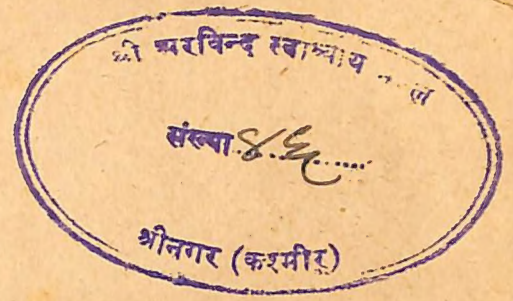 श्री अरविन्द स्वाध्याय
संख्या ४६
श्रीनगर (कश्मीर)